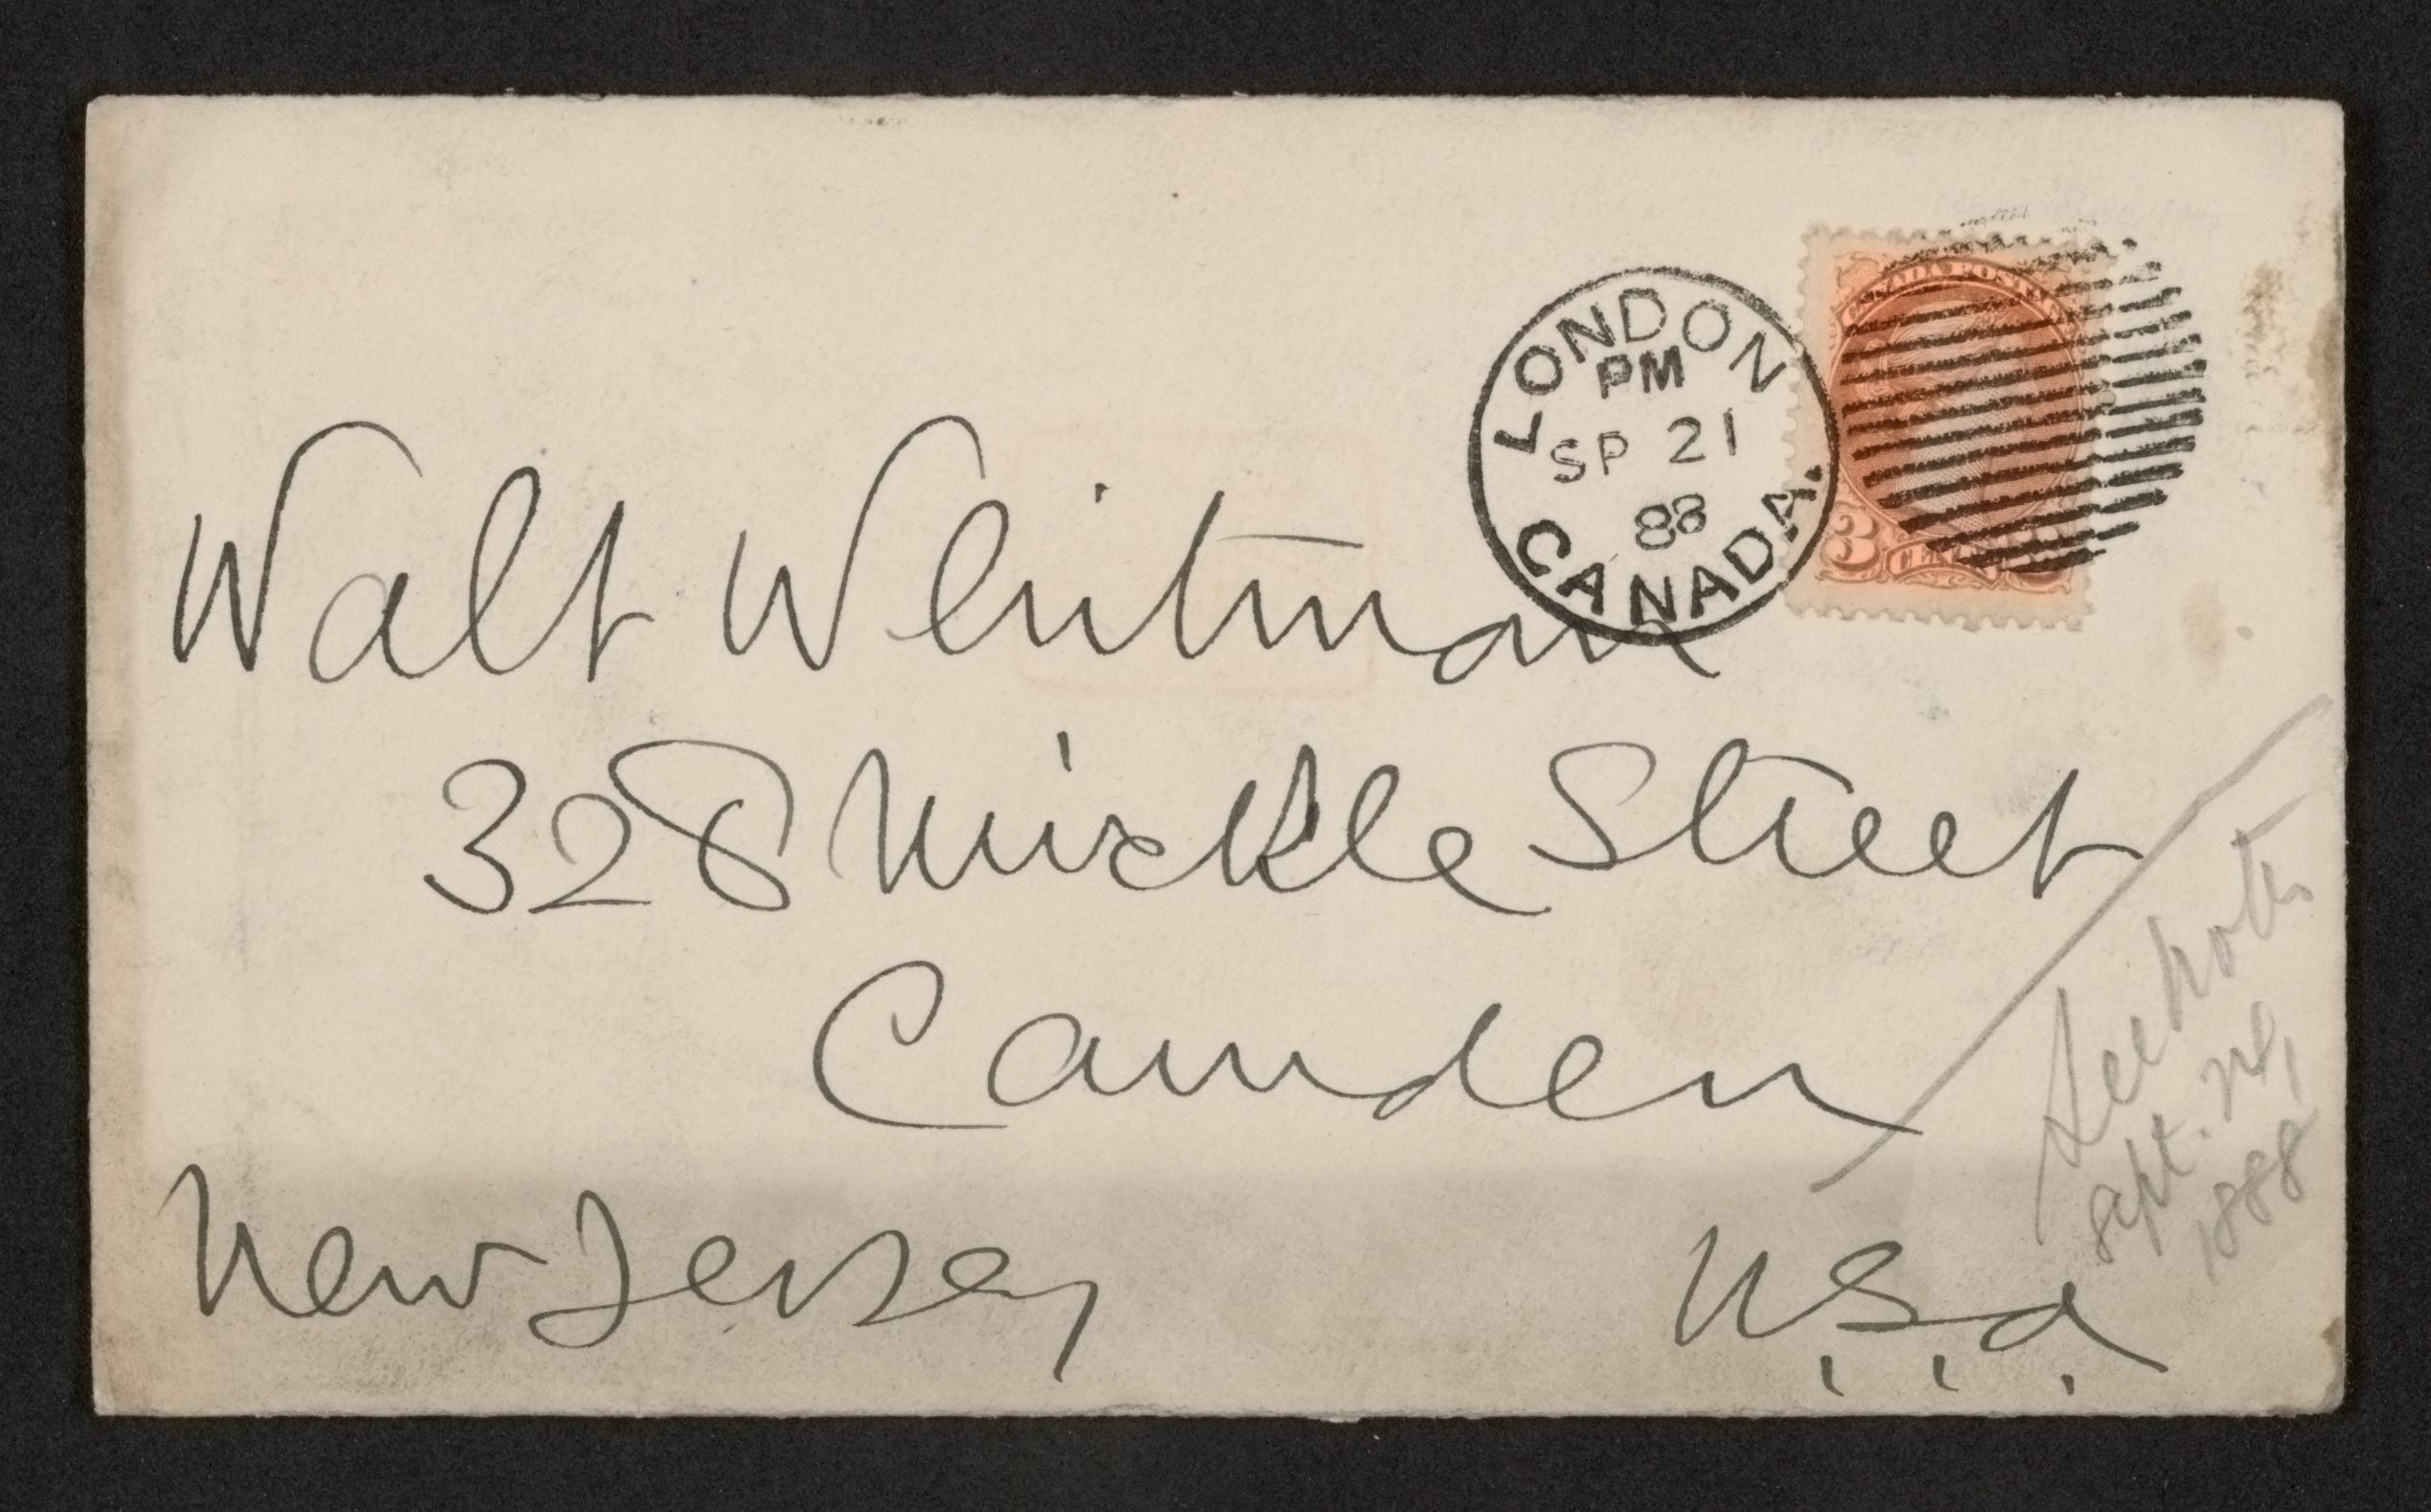 LONDON
PM
SP 21
88
CANADA.
CANADA POSTAGE
3 CENTS
Walt Whitman
328 Mickle Street
Camden
New Jersey
U.S.A.
See note
Sept.
1888